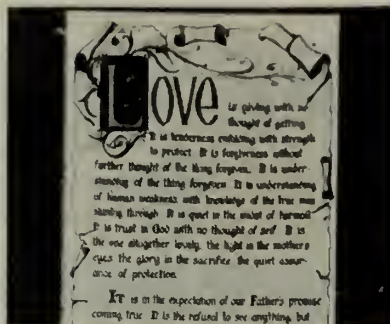 Love is giving with no
thought of getting.
It is tenderness enfolding with strength
to protect. It is forgiveness without
further thought of the thing forgiven. It is under-
standing of the thing forgiven. It is understanding
of human weakness with knowledge of the true man
shining through. It is quiet in the midst of turmoil.
It is trust in God with no thought of self. It is
the one altogether lovely, the light in the mother's
eyes, the glory in the sacrifice, the quiet assur-
ance of protection.
It is in the expectation of our Father's promise
coming true. It is the refusal to see anything, but